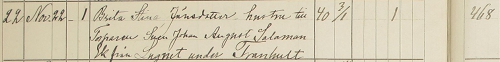 22 Nov. 22 - 1 Brita Stina Jönsdotter hustru till 40 3/1 1 468
Torparen Sven Johan August Salaman
Ek från Lugnet under Tranhult